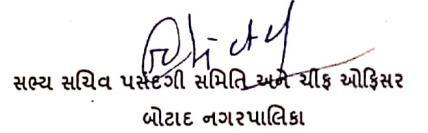 સભ્ય સચિવ પસંદગી સમિતિ અને ચીફ ઓફિસર
બોટાદ નગરપાલિકા